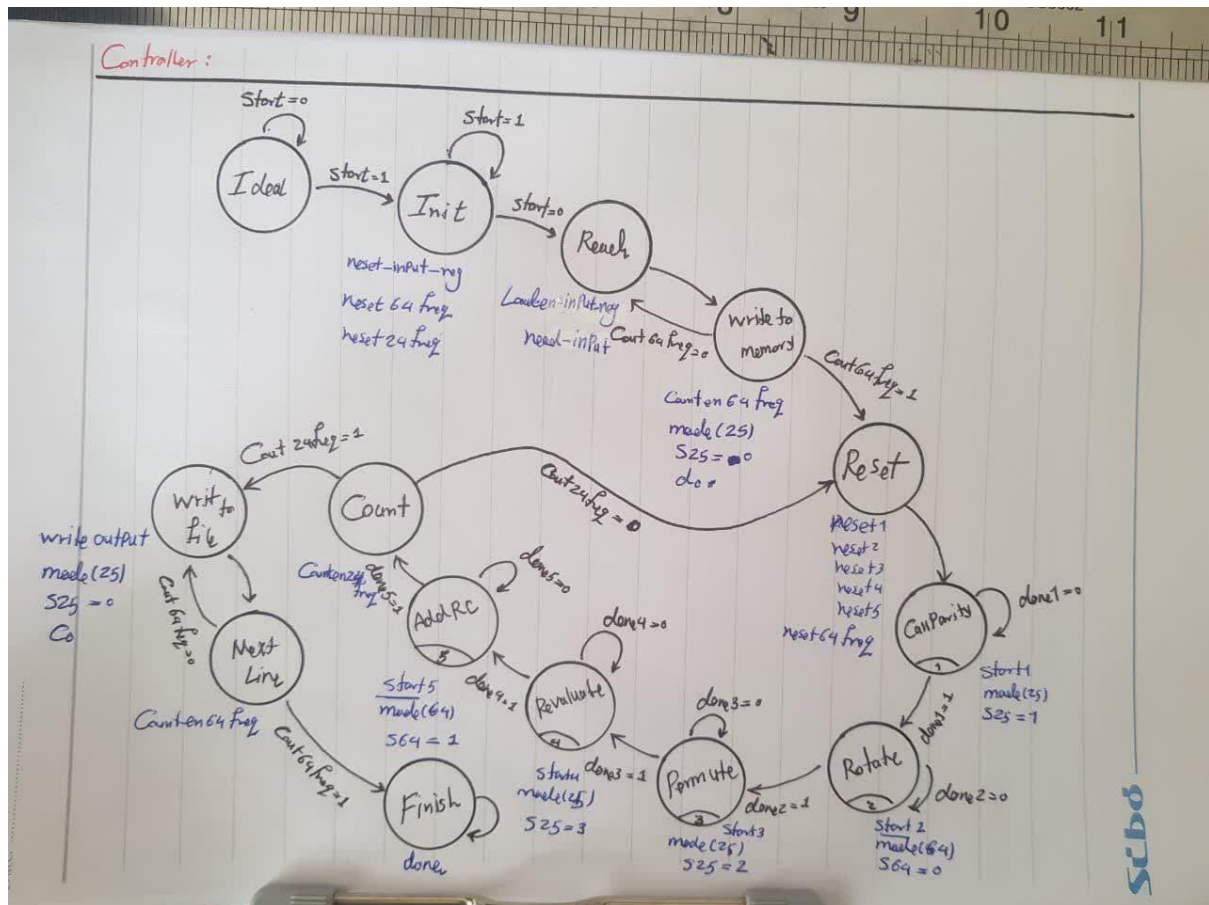 9
10
11
Controller:
Start=0
Ideal
Start=1
Start=1
Init
reset-input-reg
reset 64 freq
reset 24 freq
Start=0
Reach
need-input
write to
memory
Cout 64 freq=0
Cout 64 freq=1
Counten 64 freq
mode(25)
S25=0
Reset
reset1
reset2
reset3
reset4
reset5
reset64 freq
CalParity
1
done1=0
Start1
mode(25)
S25=1
done1=1
Rotate
2
done2=0
Start2
mode(64)
S64=0
done2=1
Permute
3
done3=0
Start3
mode(25)
S25=2
done3=1
Revaluate
4
done4=0
Start4
mode(25)
S25=3
done4=1
AddRC
5
done5=0
Start5
mode(64)
S64=1
done5=1
Count
Counten24 freq
Cout 24freq=0
Cout 24freq=1
Writ to
file
write output
mode(25)
S25=0
Co
Next
Line
Cout 64 freq=0
Counten 64 freq
Cout 64 freq=1
Finish
done
scbo